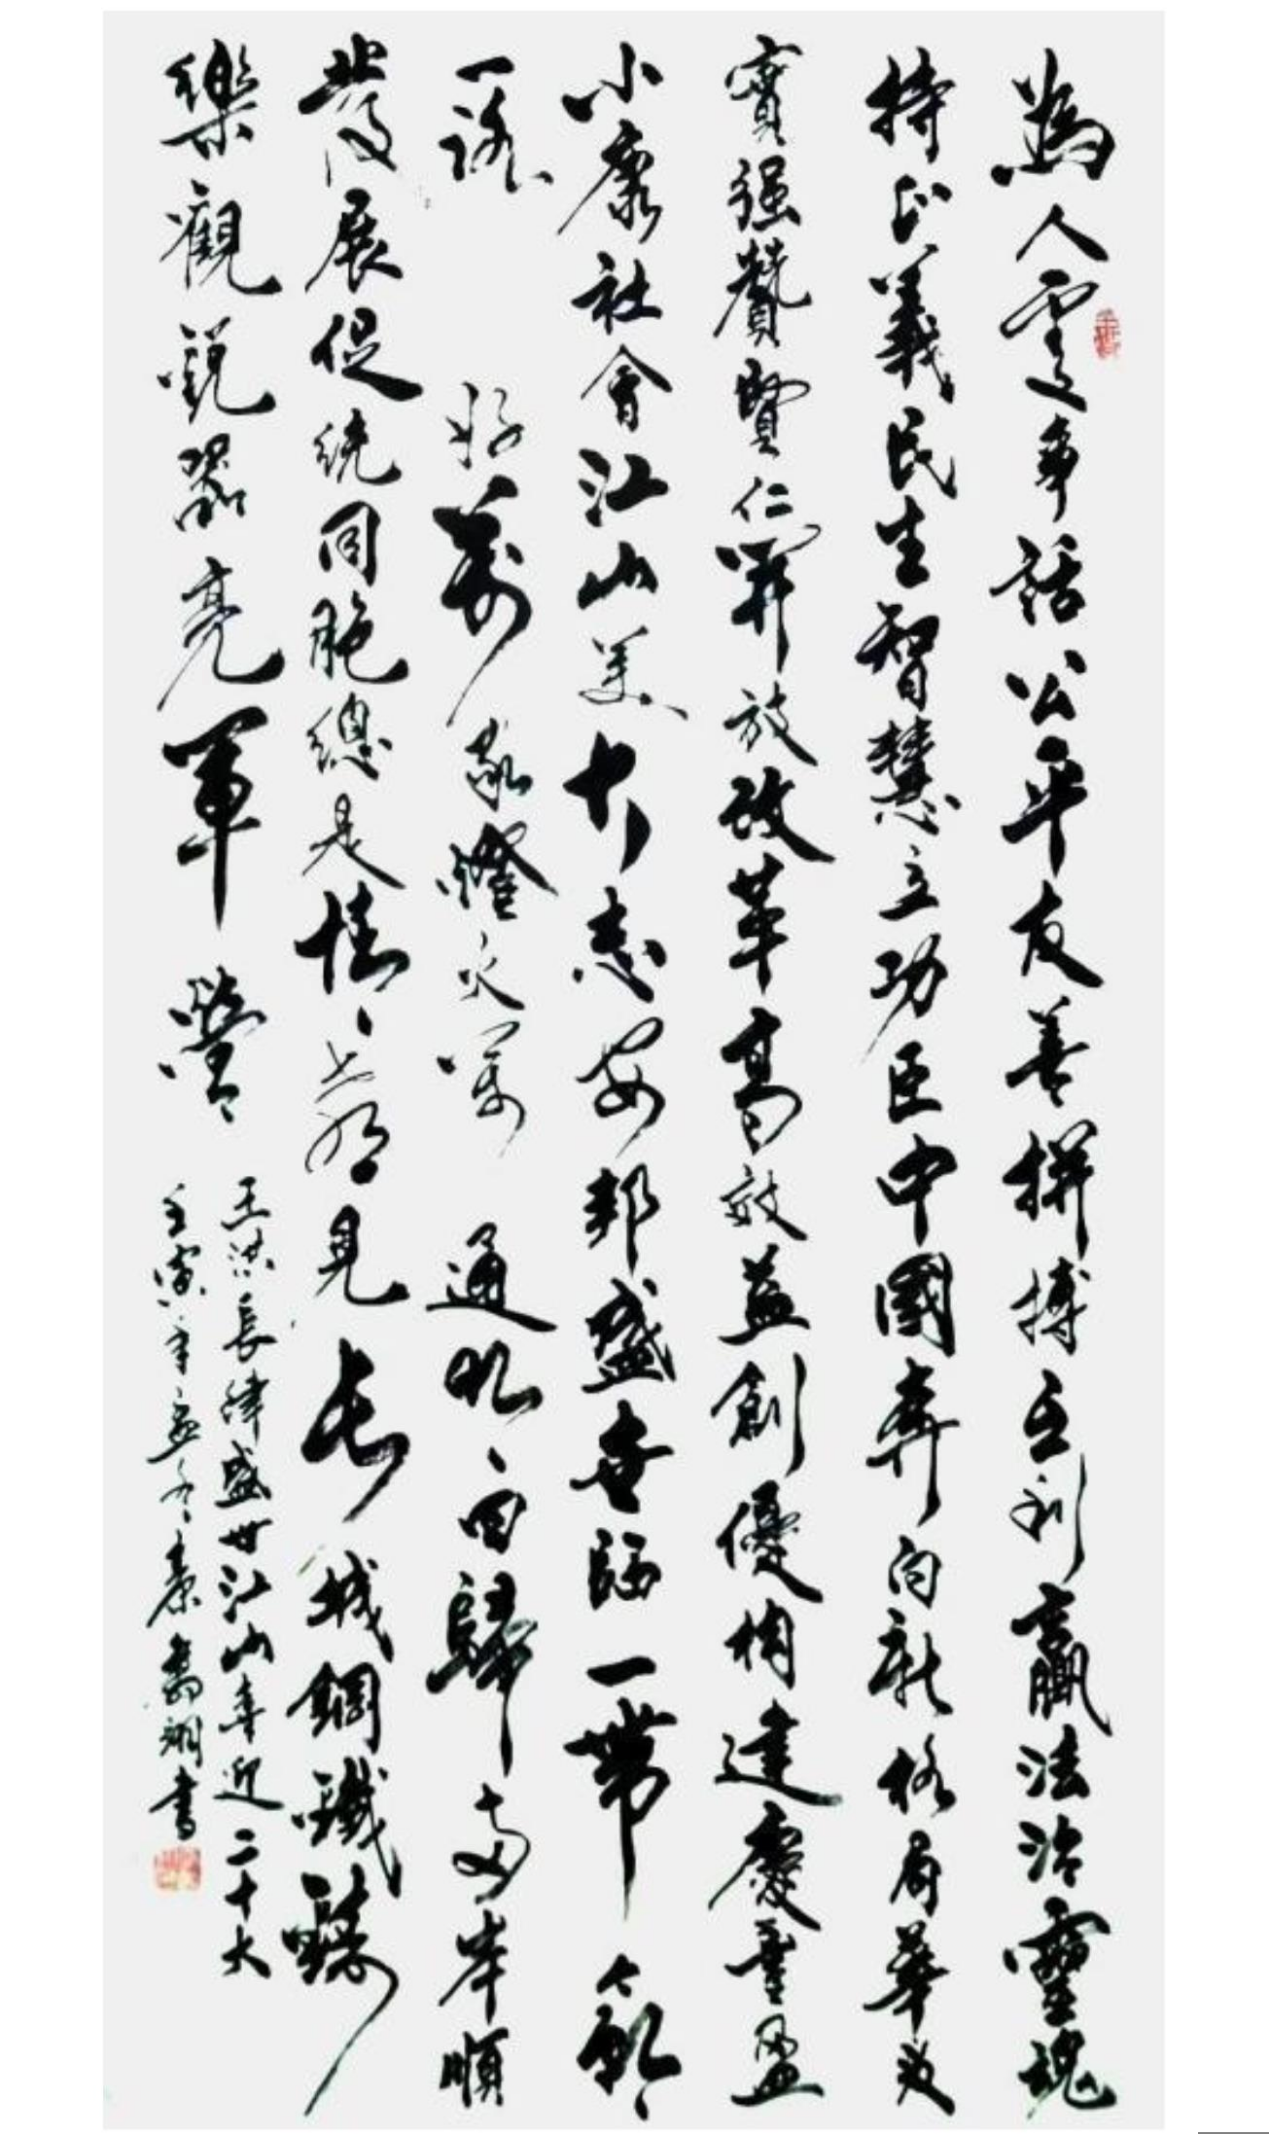 為人處事話公平友善拼搏互利贏法治靈魂
持正義民生智慧立功臣中國奔向新格局華夏
實強贊賢仁開放改革高效益創優構建慶豐盈
小康社會江山美大志安邦盛世師一帶
一路好萬家燈火萬通明回歸兩岸順
發展促統同胞總是情見長城鋼鐵
樂觀銳器亮軍營
王洪長律盛世江山喜迎二十大
壬寅年孟冬書